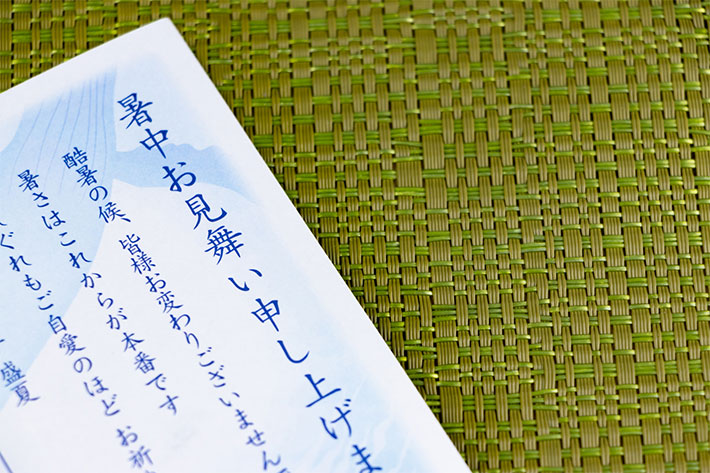 暑中お見舞い申し上げま
酷暑の候、皆様お変わりございません
暑さはこれからが本番です
ぐれもご自愛のほど お祈
盛夏